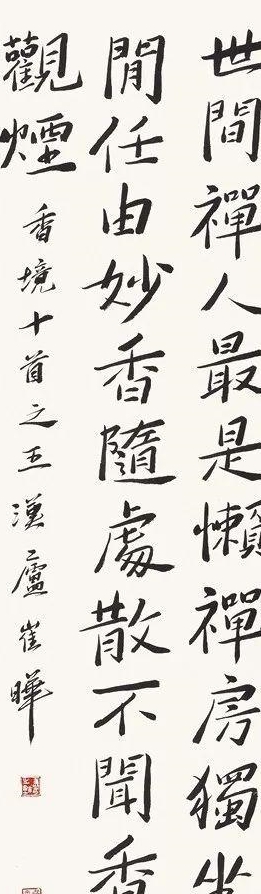 世間禪人最是懶禪房獨坐
閒任由妙香隨處散不聞香
觀煙
香境十首之五漢廬崔曄